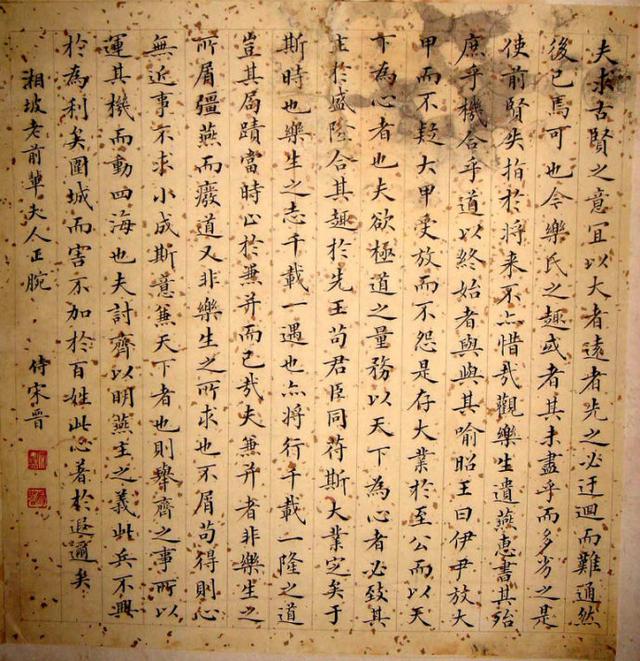 夫求古賢之意宜以大者遠者先之必迂迴而難通然
後已焉可也今樂氏之趣或者其未盡乎而多劣之是
使前賢失指於將来不亦惜哉觀樂生遺燕惠書其殆
庶乎機合乎道以終始者與與其喻昭王曰伊尹放大
甲而不疑大甲受放而不怨是存大業於至公而以天
下為心者也夫欲極道之量務以天下為心者必致其
主於盛隆合其趣於先王苟君臣同符斯大業定矣于
斯時也樂生之志千載一遇也亦將行千載一隆之道
豈其局蹟當時止於兼并而已哉夫兼并者非樂生之
所屑彊燕而廢道又非樂生之所求也不屑苟得則心
無近事不求小成斯意兼天下者也則舉齊之事所以
運其機而動四海也夫討齊以明燕主之義此兵不興
於為利矣圍城而害不加於百姓此心著於遐邇矣
湘坡老前輩夫人正腕 侍宋晉